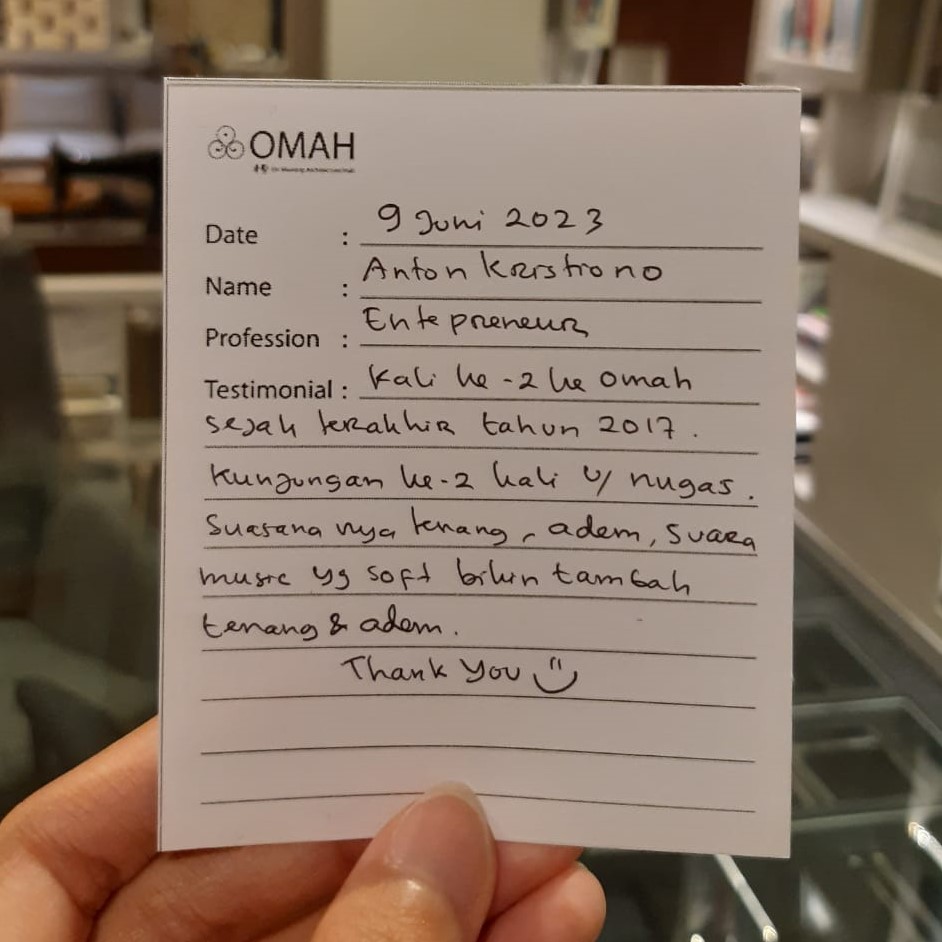 OMAH
Date : 9 Juni 2023
Name : Anton Kristiono
Profession : Entepreneur
Testimonial : Kali ke-2 ke Omah
sejak terakhir tahun 2017.
Kunjungan ke-2 kali u/ nugas.
Suasana nya tenang, adem, suara
music yg soft bikin tambah
tenang & adem.
Thank You